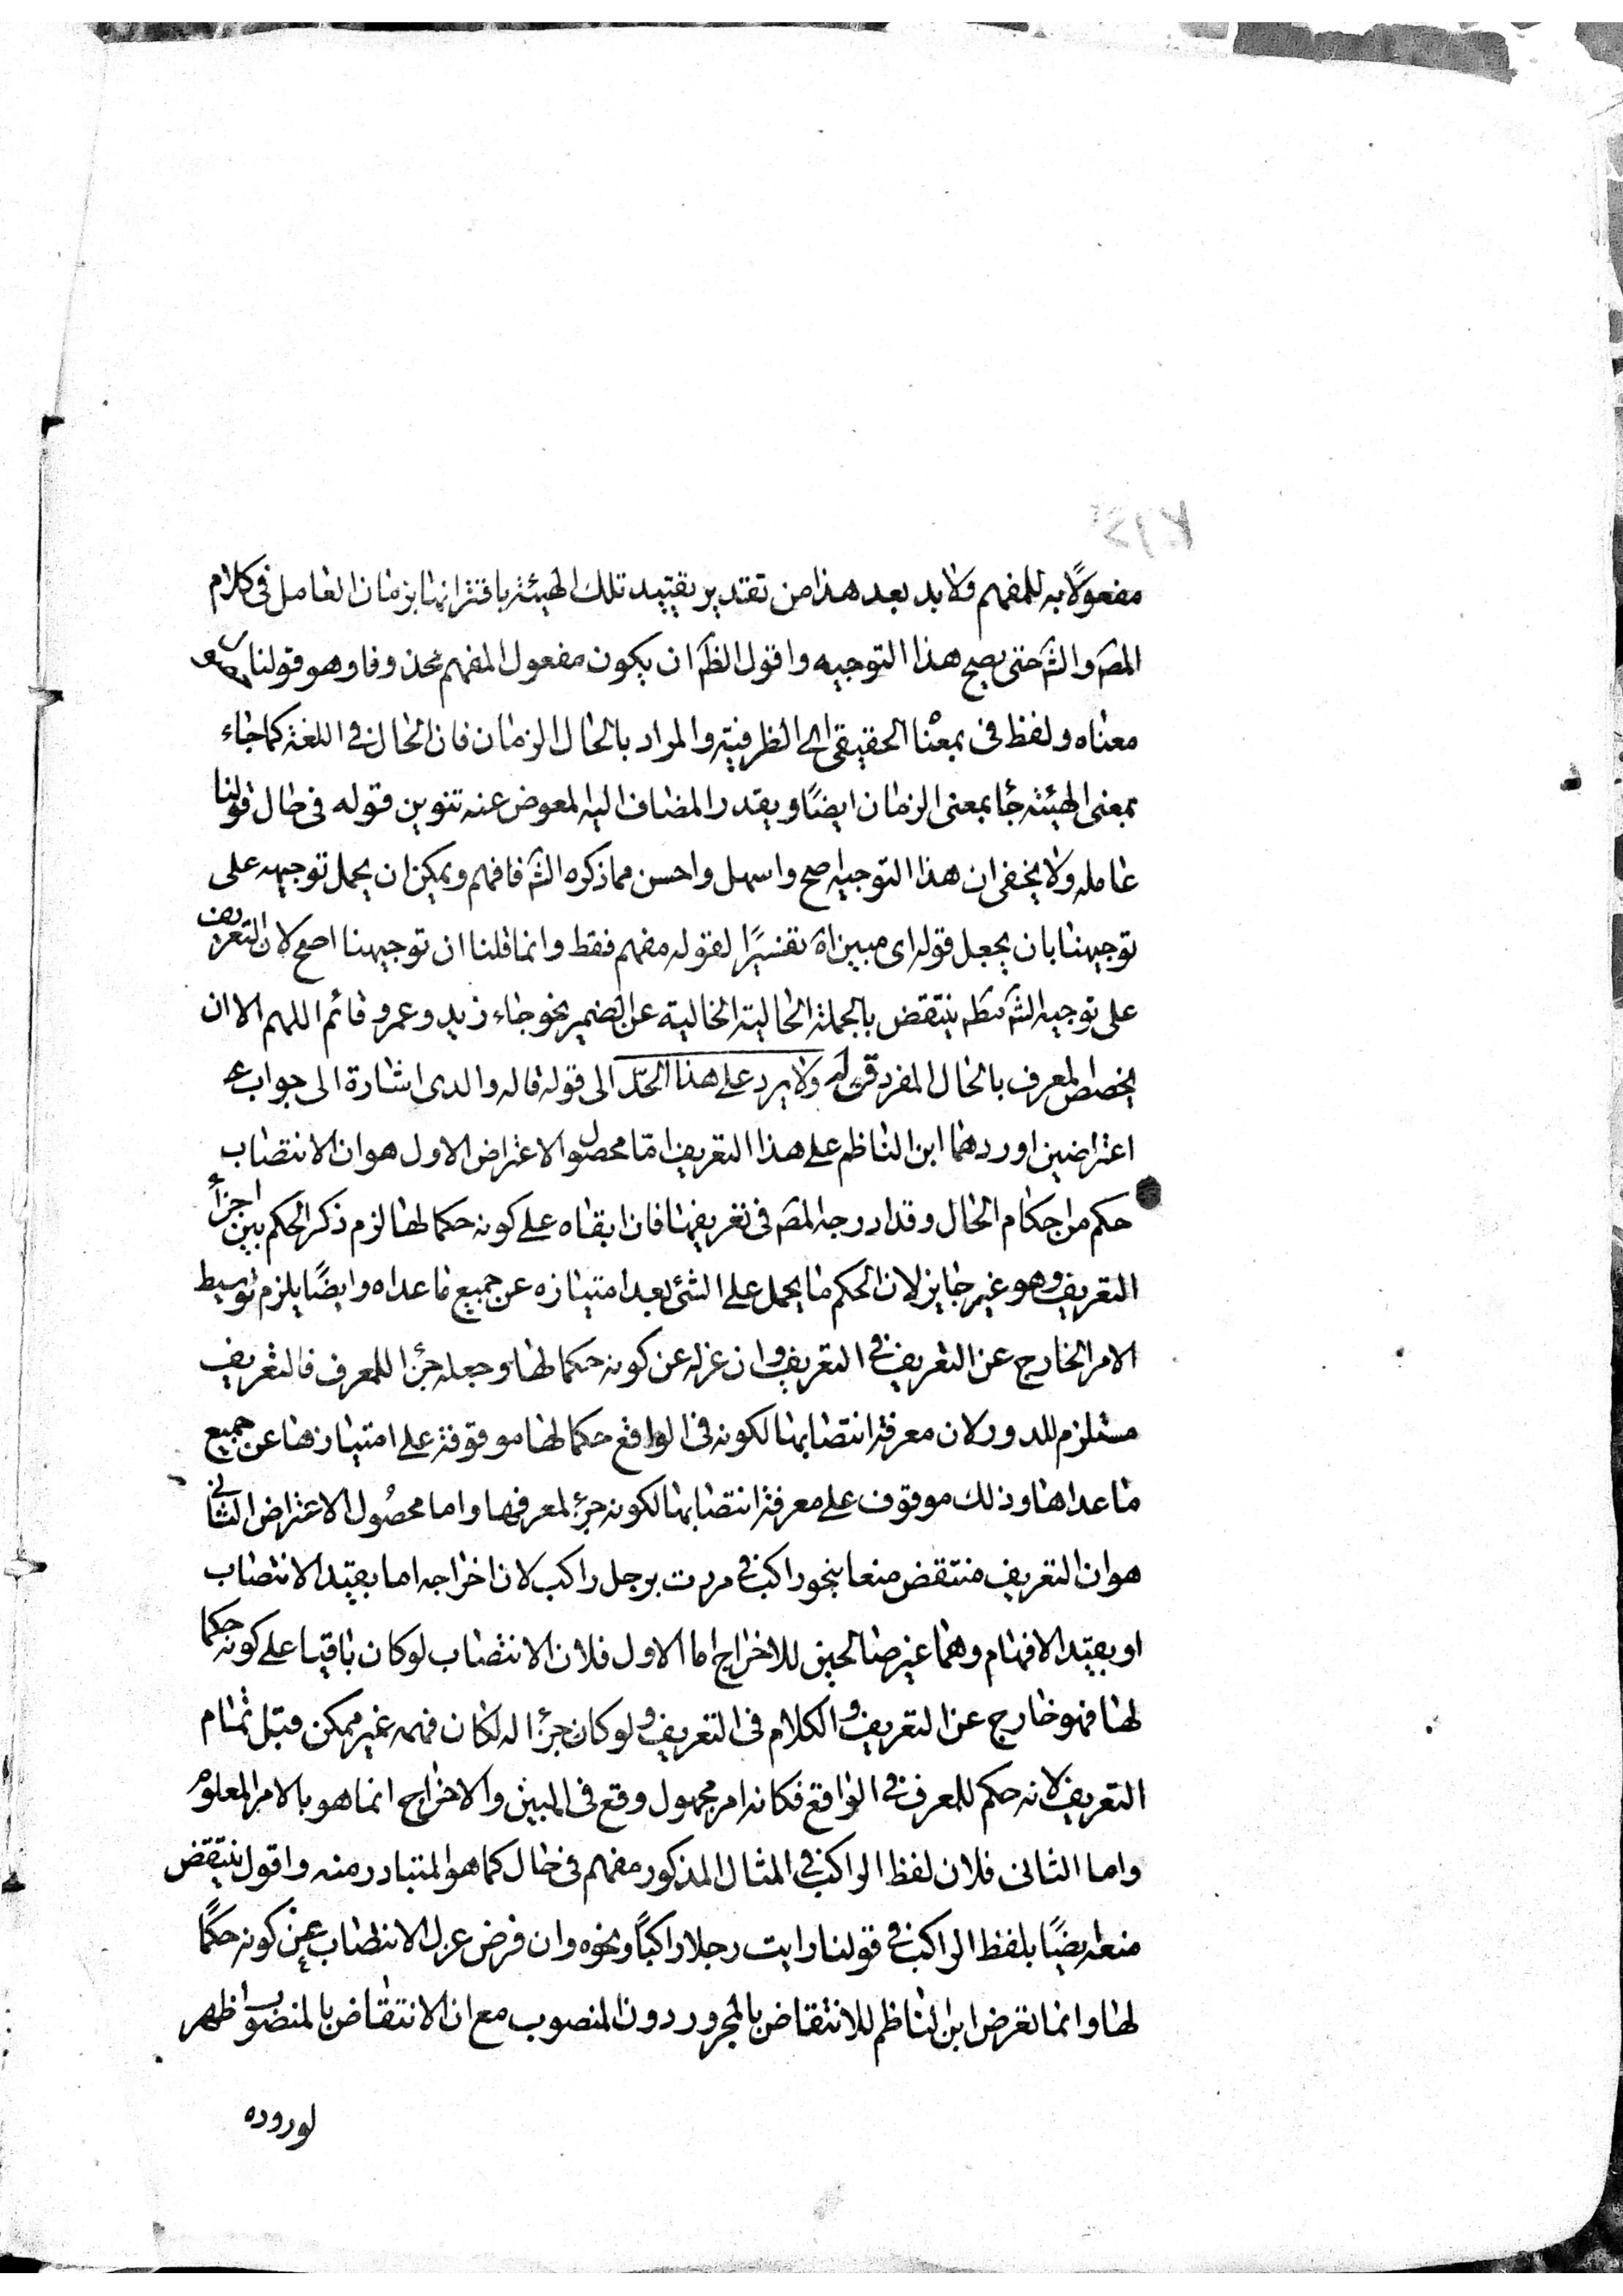 مفعولًا به للمفهم ولا بد بعد هذا من تقدير تقييد تلك الهيئة باقترانها بزمان العامل فى كلام
المصَ والشَ حتى يصح هذا التوجيه واقول الظَ ان يكون مفعول المفهم محذوفا وهو قولنا
معناه ولفظ فى بمعناه الحقيقى اى الظرفية والمراد بالحال الزمان فان الحال فى اللغة كما جاء
بمعنى الهيئة جاء بمعنى الزمان ايضًا ويقدر المضاف اليه المعوض عنه تنوين قوله فى حال قولنا
عامله ولا يخفى ان هذا التوجيه اصح واسهل واحسن مما ذكره الشَ فافهم ويمكن ان يحمل توجيهه على
توجيهنا بان يجعل قوله اى مبين اه تفسيرًا لقوله مفهم فقط وانما قلنا ان توجيهنا اصح لان التعريف
على توجيه الشَ ينتقض بالجملة الحالية الخالية عن الضمير نحو جاء زيد وعمرو قائم اللهم الا ان
يخصص المعرف بالحال المفرد قوله ولا يرد على هذا الحدّ الى قوله قاله والدى اشارة الى جواب
اعتراضين اوردهما ابن الناظم على هذا التعريف امّا محصول الاعتراض الاول هو ان الانتصاب
حكم من احكام الحال وقد ادرجه المصَ فى تعريفها فان ابقاه على كونه حكما لها لزم ذكر الحكم بين اجزأ
التعريف وهو غير جايز لان الحكم ما يحمل على الشئ بعد امتيازه عن جميع ما عداه وايضًا يلزم توسيط
الامر الخارج عن التعريف فى التعريف وان عزله عن كونه حكما لها وجعله جزءا للمعرف فالتعريف
مستلزم للدور لان معرفة انتصابها لكونه فى الواقع حكما لها موقوفة على امتيازها عن جميع
ما عداها وذلك موقوف على معرفة انتصابها لكونه جزء لمعرفها واما محصُول الاعتراض الثانى
هو ان التعريف منتقض منعا بنحو راكب فى مررت برجل راكب لان اخراجه اما بقيد الانتصاب
او بقيد الافهام وهما غير صالحين للاخراج اما الاول فلان الانتصاب لو كان باقيا على كونه حكما
لها فهو خارج عن التعريف والكلام فى التعريف ولو كان جزءا له لكان فهمه غير ممكن قبل تمام
التعريف لانه حكم للمعرف فى الواقع فكانه امر مجهول وقع فى المبين والاخراج انما هو بالامر المعلوم
واما الثانى فلان لفظ الراكب فى المثال المذكور مفهم فى حال كما هو المتبادر منه واقول ينتقض
منعه ايضًا بلفظ الراكب فى قولنا رايت رجلا راكبًا ونحوه وان فرض عزل الانتصاب عن كونه حكمًا
لها وانما تعرض ابن الناظم للانتقاض بالمجرور دون المنصوب مع ان الانتقاض بالمنصوب اظهر
لوروده